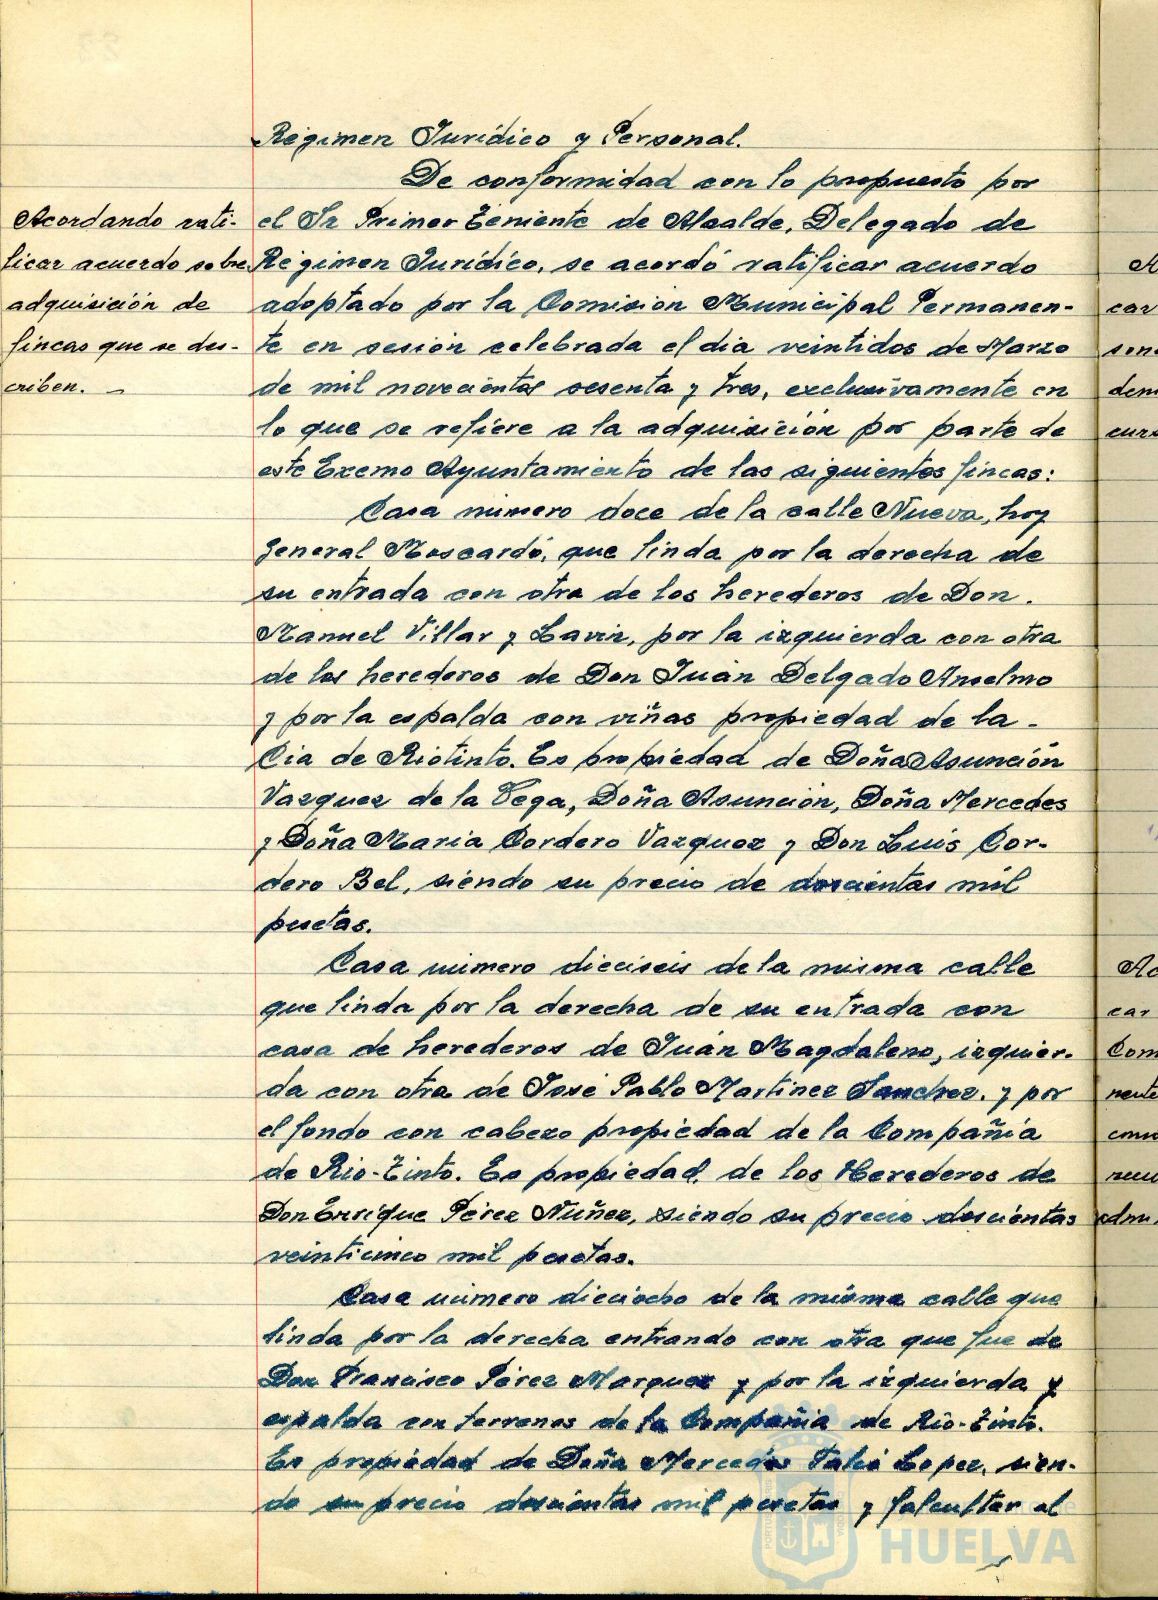 Régimen Jurídico y Personal.
De conformidad con lo propuesto por
Acordando rati-
ficar acuerdo sobre
adquisición de
fincas que se des-
criben. -
el Sr Primer Teniente de Alcalde, Delegado de
Régimen Jurídico, se acordó ratificar acuerdo
adoptado por la Comisión Municipal Permanen-
te en sesión celebrada el dia veintidos de Marzo
de mil novecientos sesenta y tres, exclusivamente en
lo que se refiere a la adquisición por parte de
este Excmo Ayuntamiento de las siguientes fincas:
Casa número doce de la calle Nueva, hoy
General Moscardó, que linda por la derecha de
su entrada con otra de los herederos de Don.
Manuel Villar y Lavin, por la izquierda con otra
de los herederos de Don Juan Delgado Anselmo
y por la espalda con viñas propiedad de la -
Cia de Riotinto. Es propiedad de Doña Asunción
Vazquez de la Vega, Doña Asunción, Doña Mercedes
y Doña Maria Cordero Vazquez y Don Luis Cor-
dero Bel, siendo su precio de doscientas mil
pesetas.
Casa número dieciseis de la misma calle
que linda por la derecha de su entrada con
casa de herederos de Juan Magdaleno, izquier-
da con otra de José Pablo Martinez Sanchez. y por
el fondo con cabezo propiedad de la Compañia
de Rio-Tinto. Es propiedad de los Herederos de
Don Enrique Pérez Nuñez, siendo su precio doscientas
veinticinco mil pesetas.
Casa número dieciocho de la misma calle que
linda por la derecha entrando con otra que fue de
Don Francisco Pérez Marquez y por la izquierda y
espalda con terrenos de la Compañia de Rio-Tinto.
Es propiedad de Doña Mercedes Lopez, sien-
do su precio doscientas mil pesetas y facultar al
HUELVA